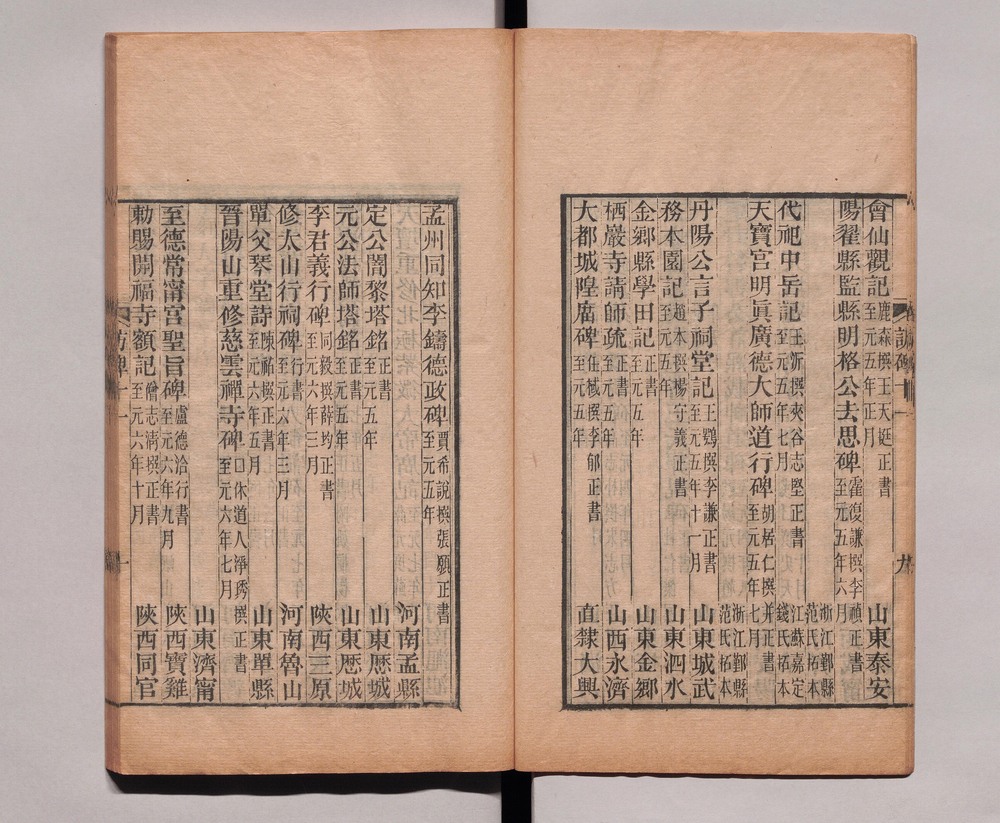 會仙觀記 鹿森撰王天挺正書 至元五年正月 山東泰安
陽翟縣監縣明格公去思碑 霍復謙撰李禎正書 至元五年六月 浙江鄞縣范氏拓本
代祀中岳記 王沂撰夾谷志堅正書 至元五年七月 江蘇嘉定錢氏拓本
天寶宮明眞廣德大師道行碑 胡居仁撰并正書 至元五年七月 浙江鄞縣范氏拓本
丹陽公言子祠堂記 王鶚撰李謙正書 至元五年十一月 山東城武
務本園記 趙本撰楊守義正書 至元五年 山東泗水
金鄉縣學田記 正書 至元五年 山東金鄉
栖巖寺請師疏 正書 至元五年 山西永濟
大都城隍廟碑 任棫撰李郁正書 至元五年 直隸大興
訪碑十一
九
孟州同知李鑄德政碑 賈希說撰張願正書 至元五年 河南孟縣
定公闍黎塔銘 正書 至元五年 山東歷城
元公法師塔銘 正書 至元五年 山東歷城
李君義行碑 同毅撰薛均正書 至元六年三月 陝西三原
修太山行祠碑 行書 至元六年三月 河南魯山
單父琴堂詩 陳祐撰正書 至元六年五月 山東單縣
晉陽山重修慈雲禪寺碑 口休道人淨琇撰正書 至元六年七月 山東濟甯
至德常甯宮聖旨碑 盧德洽行書 至元六年九月 陝西寶雞
勅賜開福寺額記 僧志淸撰正書 至元六年十月 陝西同官